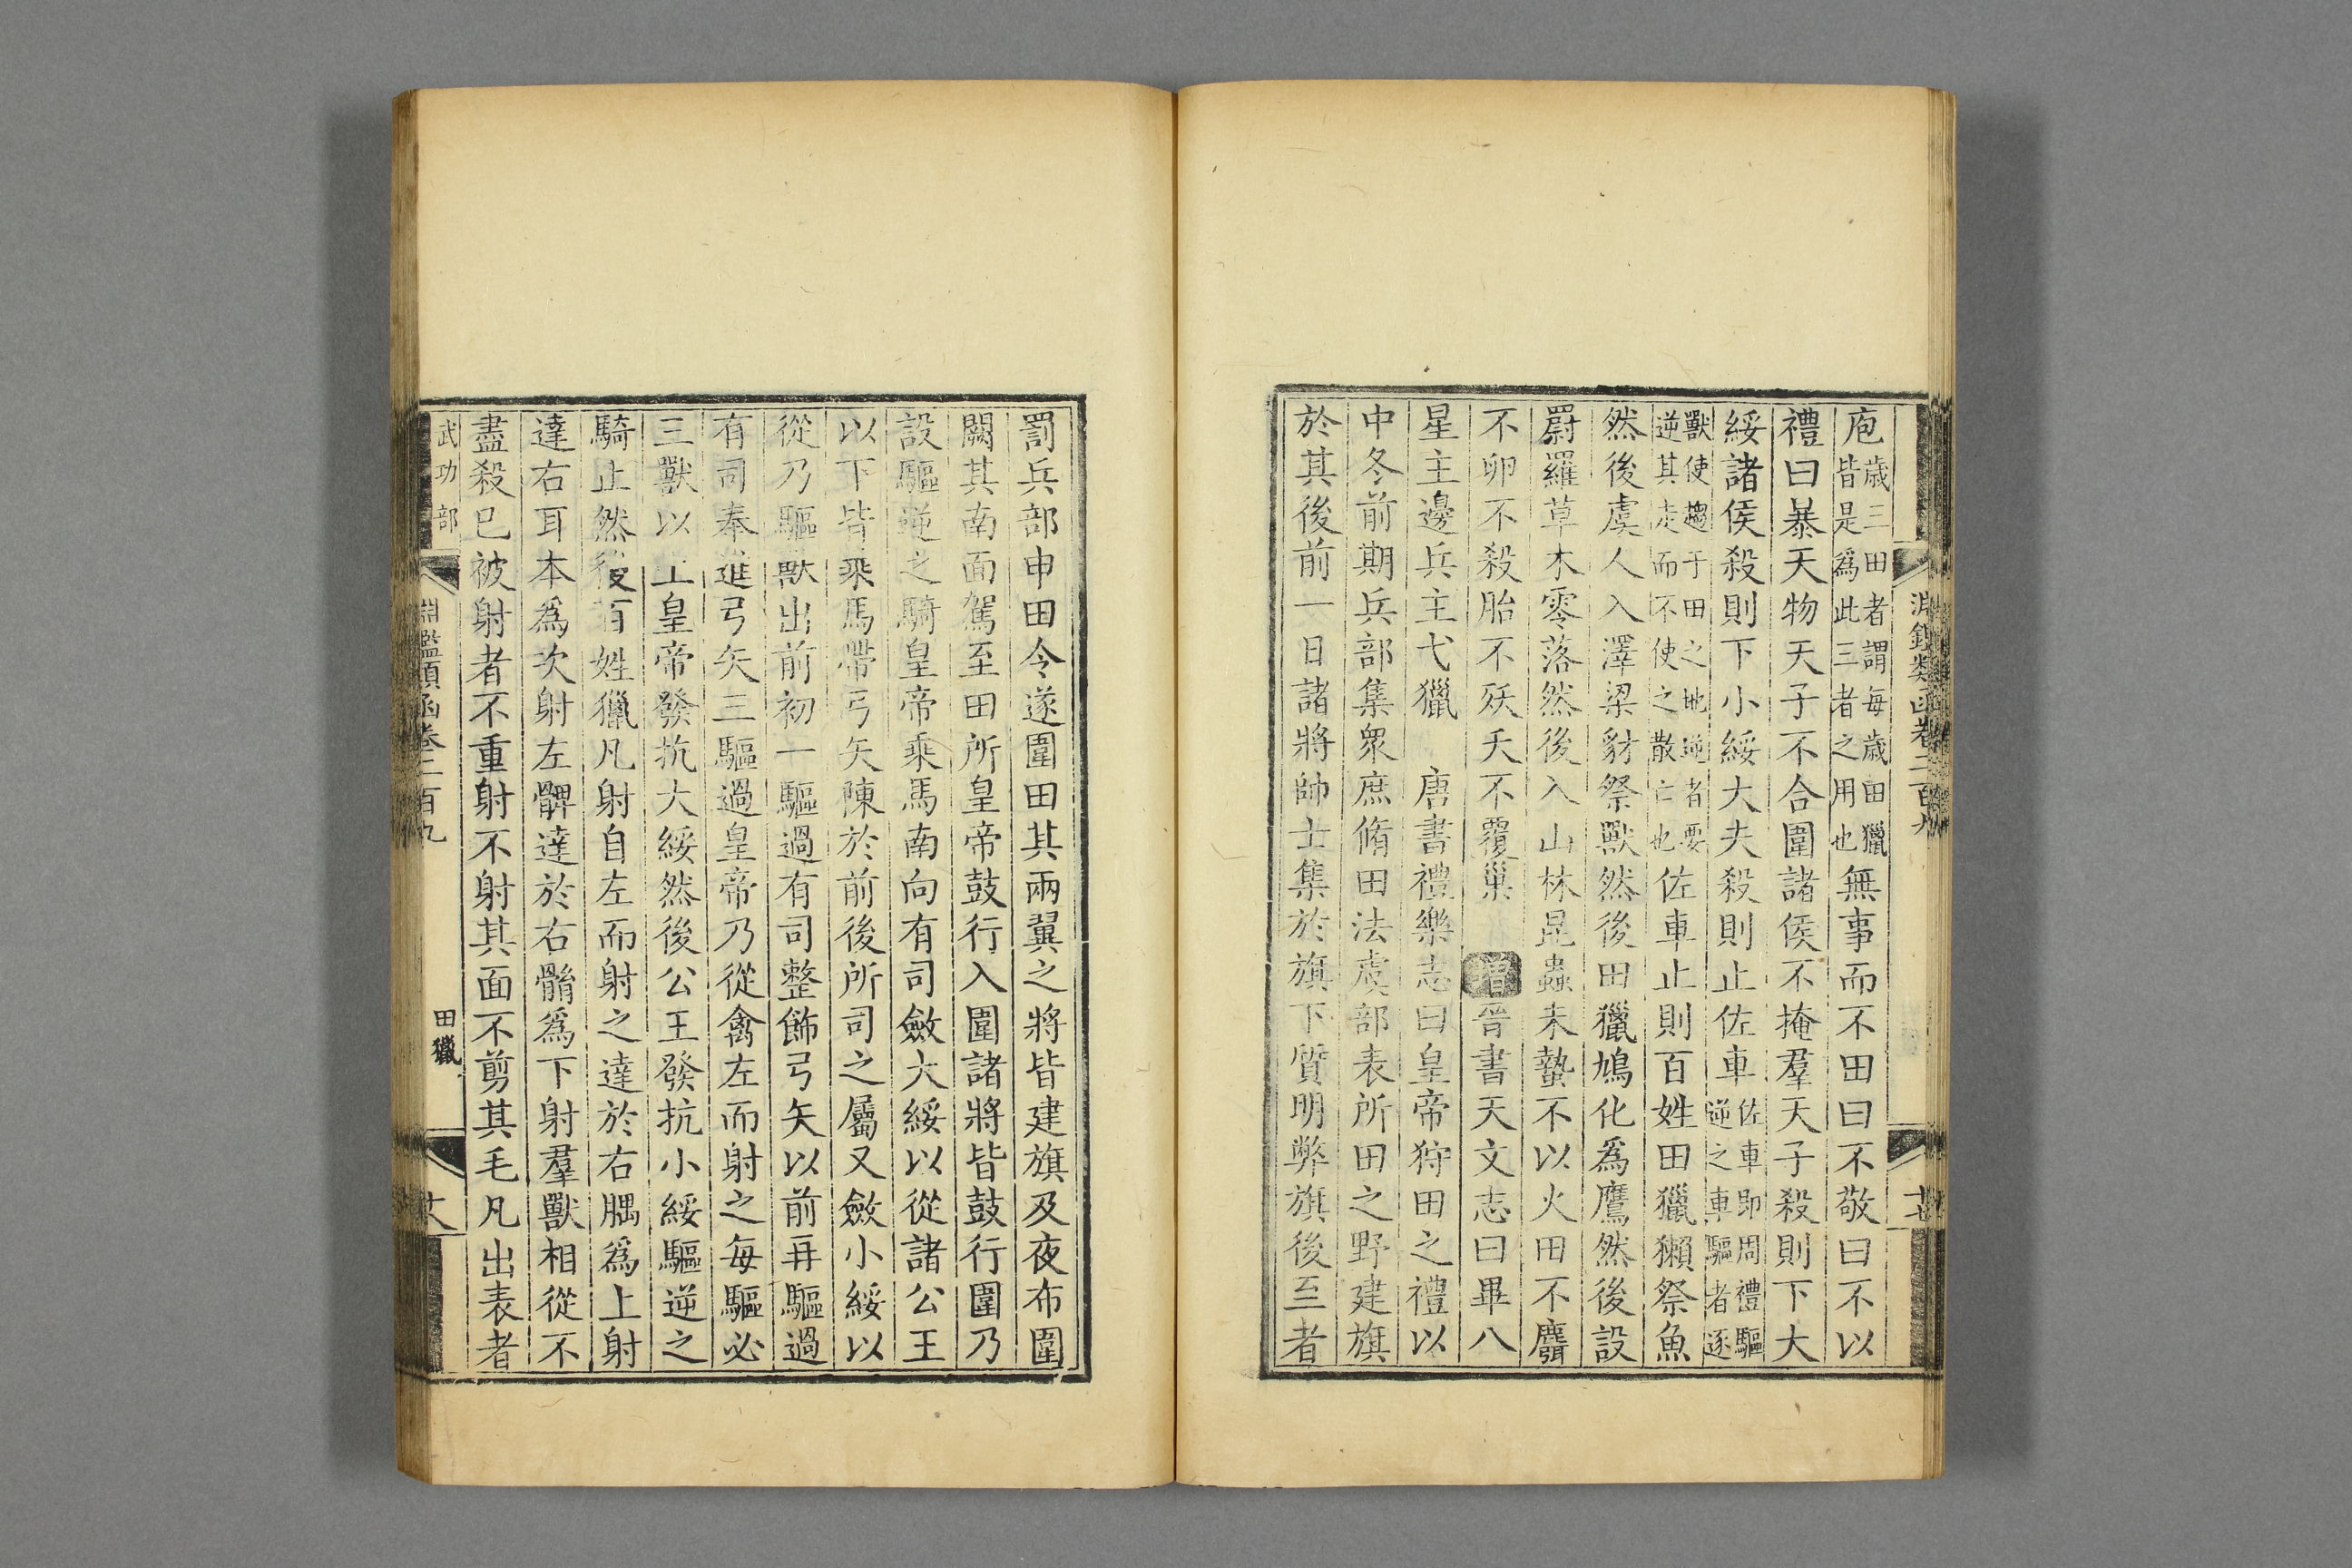 庖歲三田者謂每歲田獵皆是爲此三者之用也無事而不田曰不敬曰不以
禮曰暴天物天子不合圍諸侯不掩羣天子殺則下大
綏諸侯殺則下小綏大夫殺則止佐車佐車即周禮驅逆之車驅者逐
獸使趨于田之地逆者要逆其走而不使之散亡也佐車止則百姓田獵獺祭魚
然後虞人入澤梁豺祭獸然後田獵鳩化爲鷹然後設
罻羅草木零落然後入山林昆蟲未蟄不以火田不麛
不卵不殺胎不殀夭不覆巢 增晉書天文志曰畢八
星主邊兵主弋獵 唐書禮樂志曰皇帝狩田之禮以
中冬前期兵部集衆庶脩田法虞部表所田之野建旗
於其後前一日諸將帥士集於旗下質明弊旗後至者
罰兵部申田令遂圍田其兩翼之將皆建旗及夜布圍
闕其南面駕至田所皇帝鼓行入圍諸將皆鼓行圍乃
設驅逆之騎皇帝乘馬南向有司斂大綏以從諸公王
以下皆乘馬帶弓矢陳於前後所司之屬又斂小綏以
從乃驅獸出前初一驅過有司整飾弓矢以前再驅過
有司奉進弓矢三驅過皇帝乃從禽左而射之每驅必
三獸以上皇帝發抗大綏然後公王發抗小綏驅逆之
騎止然後百姓獵凡射自左而射之達於右腢爲上射
達右耳本爲次射左髀達於右䯚爲下射羣獸相從不
盡殺已被射者不重射不射其面不剪其毛凡出表者
武功部
淵鑑類函卷二百九
田獵